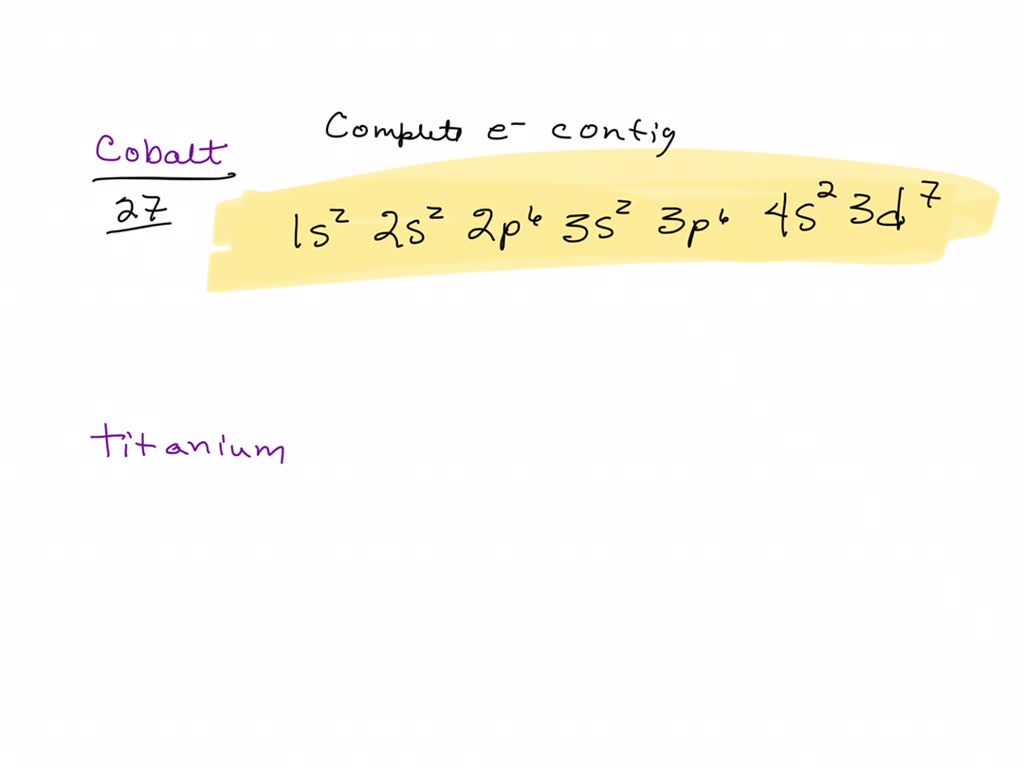 Complete e⁻ config
Cobalt
27
1s² 2s² 2p⁶ 3s² 3p⁶ 4s² 3d⁷
titanium